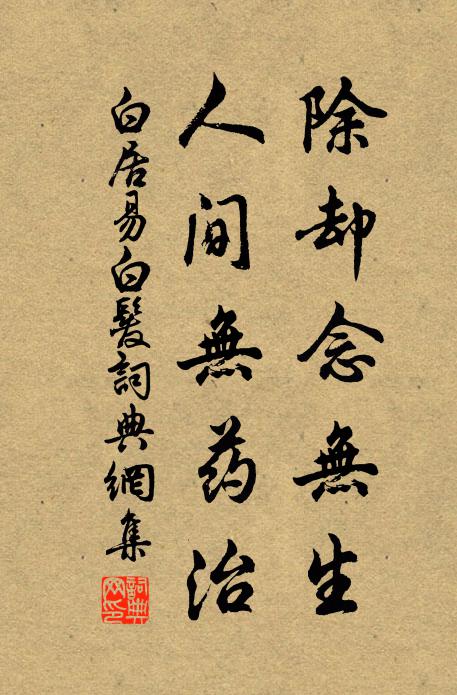 除却念無生
人间無药治
白居易白髮詞典網集
詞典网印